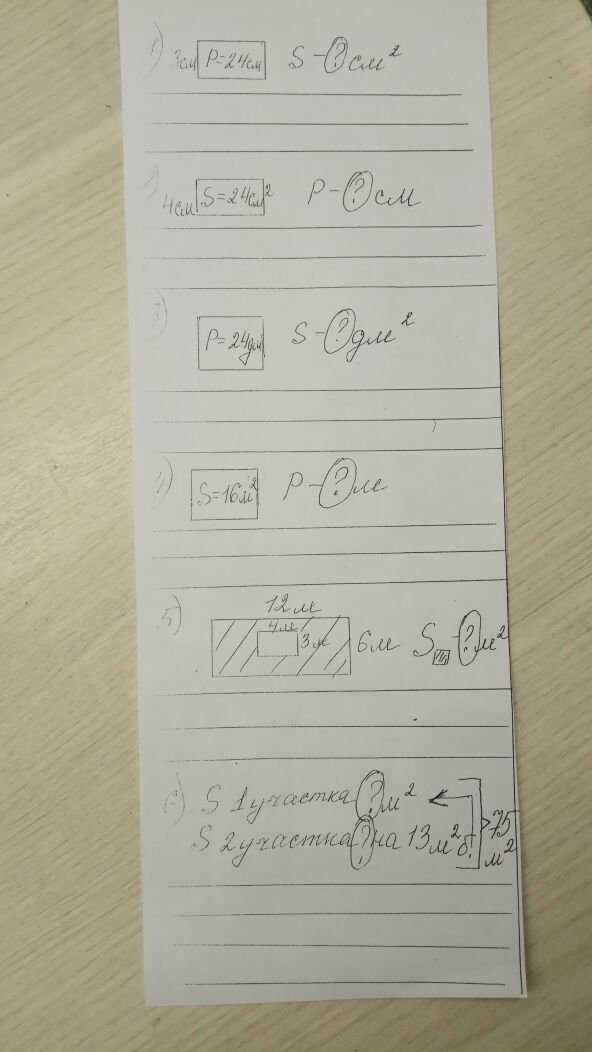 1) 3см P=24см S-?см²
2) 4см S=24см² P-?см
3) P=24дм S-?дм²
4) S=16м² P-?м
5) 12м
4м
3м 6м S -?м²
6) S 1участка-?м²
S 2участка-?на 13м²б. 75 м²